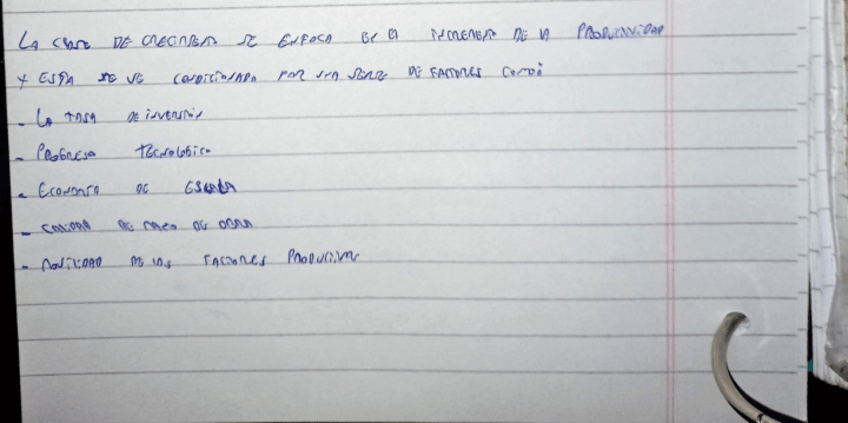 La clave de crecimiento se enfoca en el incremento de la productividad
y esta se ve condicionada por una serie de factores como
- La tasa de inversión
- Progreso tecnológico
- Economía de escala
- Calidad de mano de obra
- Movilidad de los factores productivos